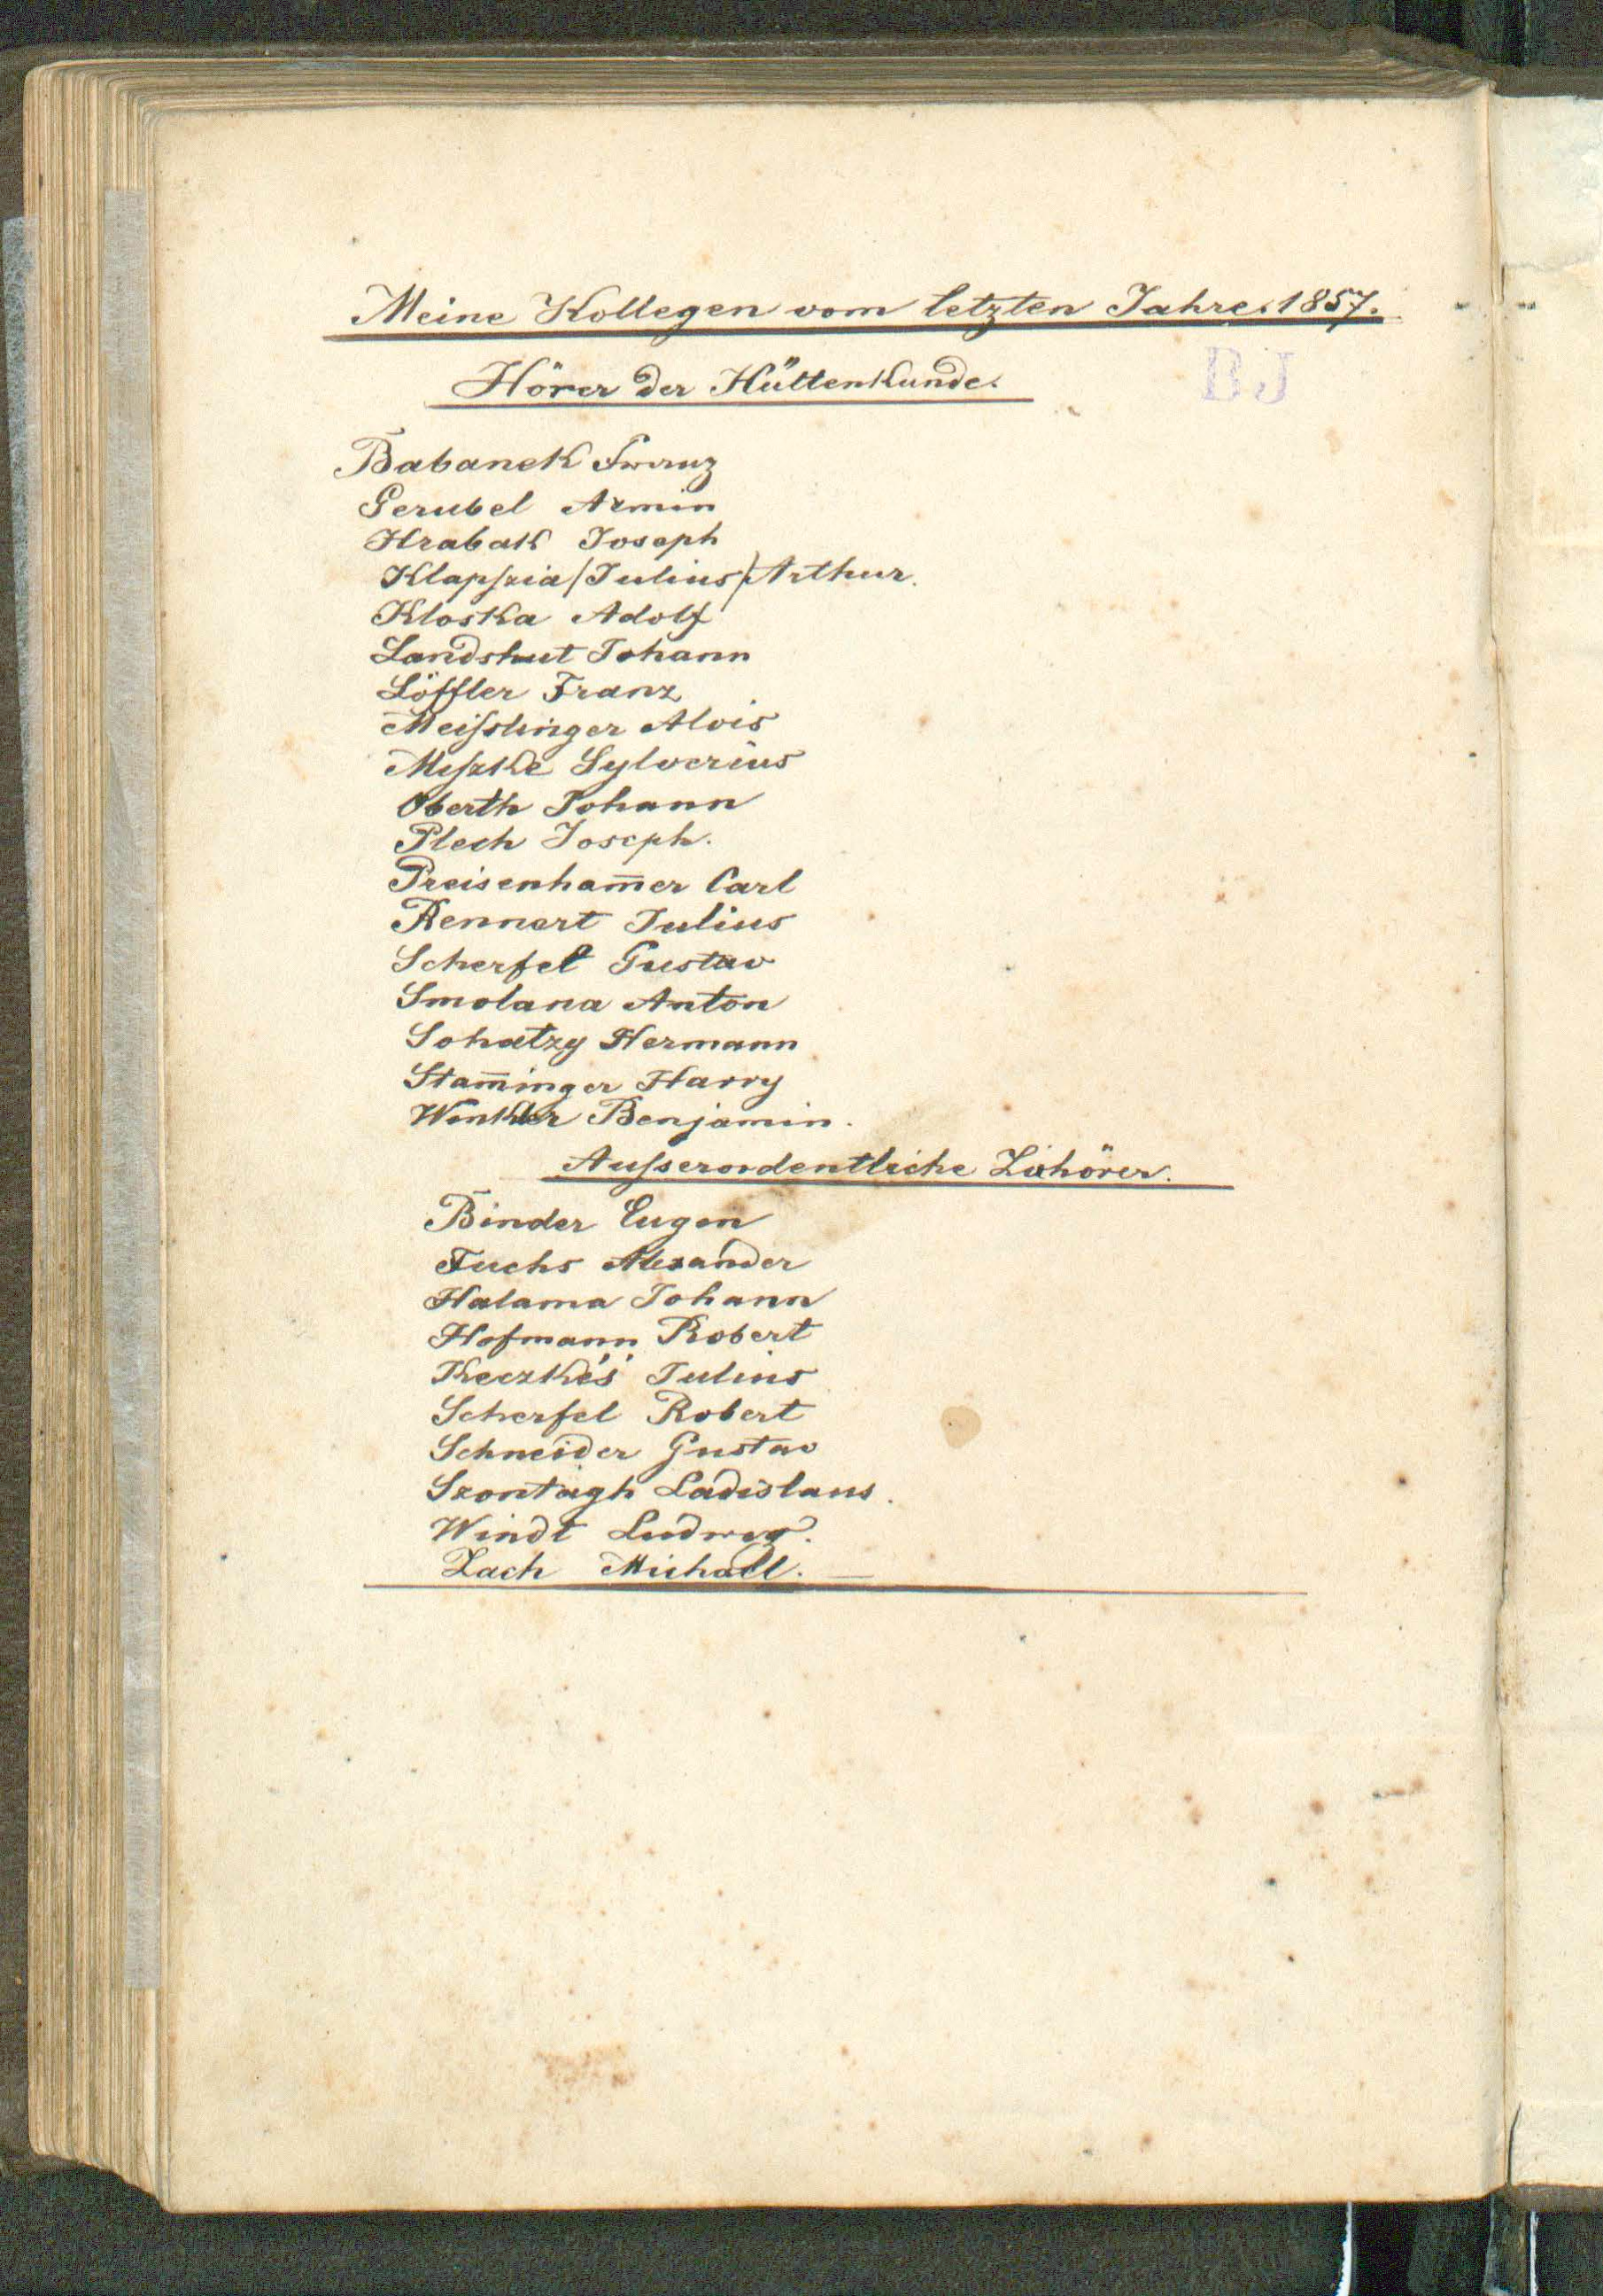 Meine Kollegen vom letzten Jahre 1857.
Hörer der Hüttenkunde.
BJ
Babanek Franz
Gerubel Armin
Hrabak Joseph
Klapſzia /Julius/ Arthur.
Kloska Adolf
Landshut Johann
Löffler Franz
Meiſslinger Alois
Miſzke Sylverius
Oberth Johann
Plech Joseph.
Preisenham̅er Carl
Rennert Julius
Scherfel Gustav
Smolana Anton
Sohatzy Hermann
Stam̅inger Harry
Winkler Benjamin.
Auſserordentliche Zuhörer.
Binder Eugen
Fuchs Alexander
Halama Johann
Hofmann Robert
Keczkés Julius
Scherfel Robert
Schneider Gustav
Szontágh Ladislaus.
Windt Ludwig.
Zach Michaël. —